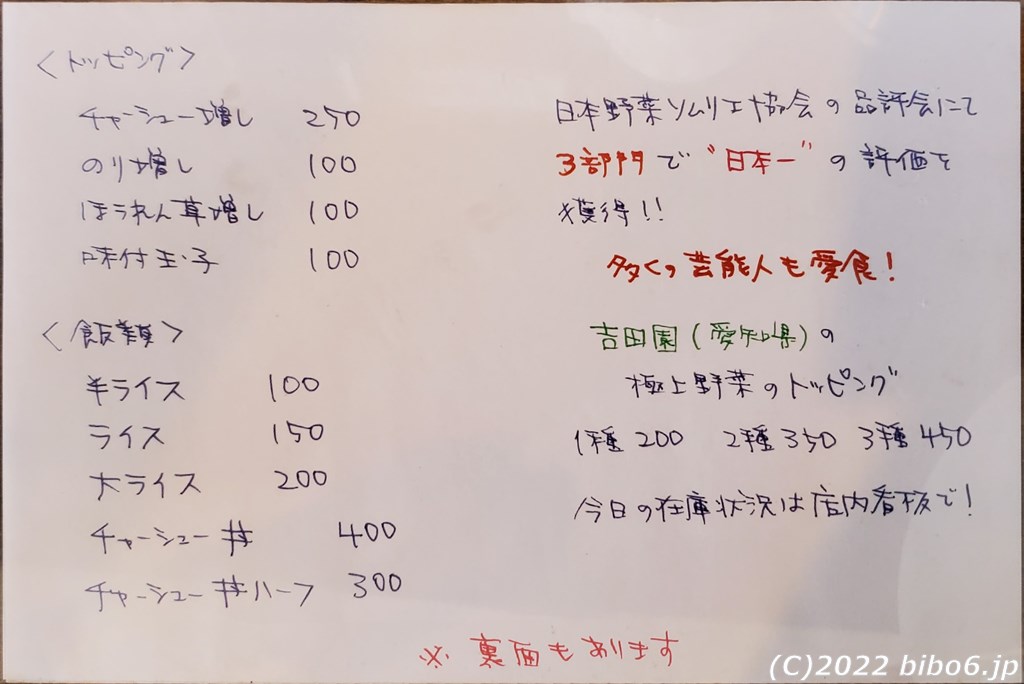 <トッピング>
チャーシュー増し 250
のり増し 100
ほうれん草増し 100
味付玉子 100
<飯類>
半ライス 100
ライス 150
大ライス 200
チャーシュー丼 400
チャーシュー丼ハーフ 300
日本野菜ソムリエ協会の品評会にて
3部門で"日本一"の評価を
獲得!!
多くの芸能人も愛食!
吉田園(愛知県)の
極上野菜のトッピング
1種200 2種350 3種450
今日の在庫状況は店内看板で!
※裏面もあります
(C)2022 bibo6.jp